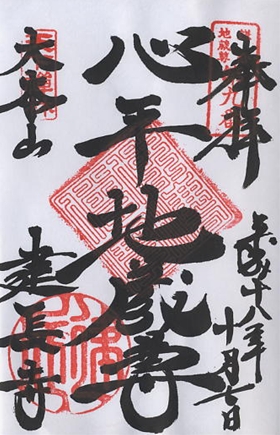 奉拝
鎌倉
地蔵尊
第九番
平成十八年
十月七日
心平地蔵尊
大本山
建長寺